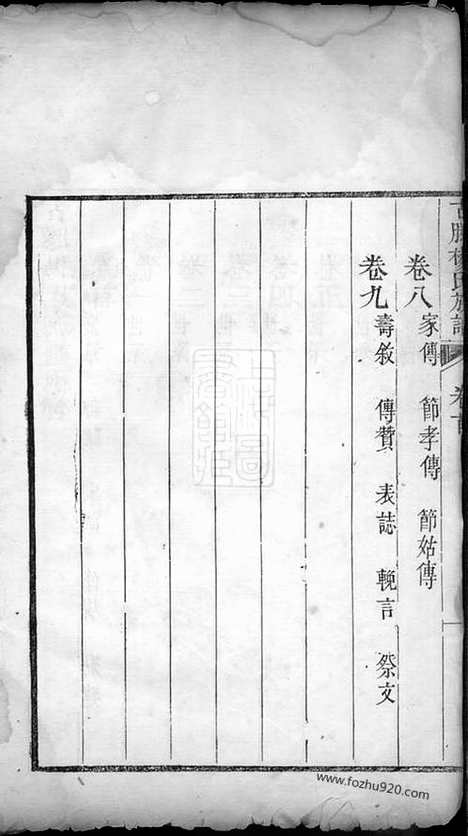 卷八 家傳 節孝傳 節姑傳
卷九 壽敘 傳贊 表誌 輓言 祭文
卷首
www.fozhu920.com